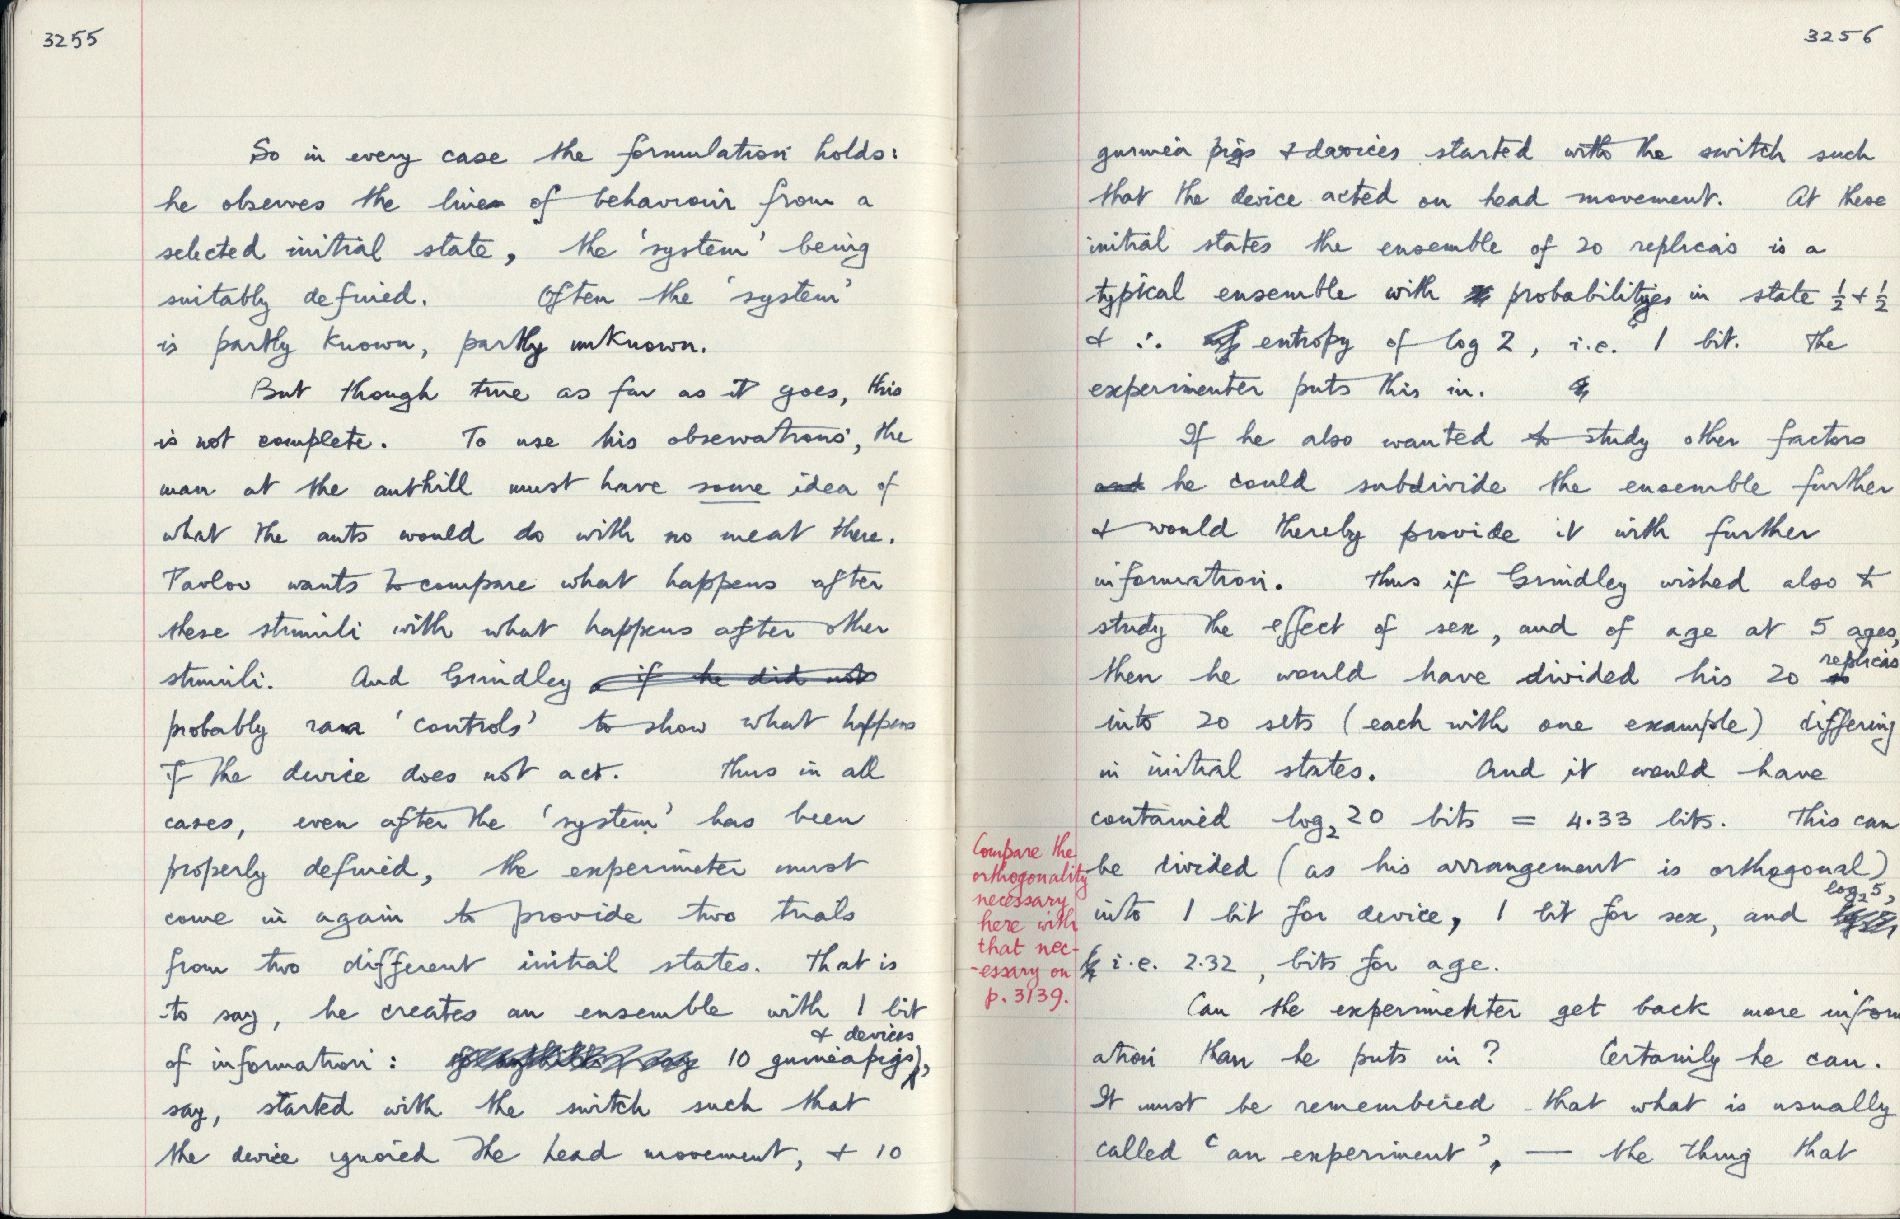 3255
So in every case the formulation holds:
he observes the line of behaviour from a
selected initial state, the 'system' being
suitably defined. Often the 'system'
is partly known, partly unknown.
But though true as far as it goes, this
is not complete. To use his observations, the
man at the anthill must have some idea of
what the ants would do with no meat there.
Pavlov wants to compare what happens after
these stimuli with what happens after other
stimuli. And Grindley if he did not
probably ran 'controls' to show what happens
if the device does not act. Thus in all
cases, even after the 'system' has been
properly defined, the experimeter must
come in again to provide two trials
from two different initial states. That is
to say, he creates an ensemble with 1 bit
& devices
of information: 10 guinea pigs,
say, started with the switch such that
the device ignored the head movement, & 10
3256
guinea pigs & devices started with the switch such
that the device acted on head movement. At these
initial states the ensemble of 20 replicas is a
typical ensemble with probabilities in state ½ & ½
& ∴ entropy of log 2, i.e. 1 bit. The
experimenter puts this in.
If he also wanted to study other factors
and he could subdivide the ensemble further
& would thereby provide it with further
information. Thus if Grindley wished also to
study the effect of sex, and of age at 5 ages,
replicas
then he would have divided his 20
into 20 sets (each with one example) differing
in initial states. And it would have
contained log₂ 20 bits = 4.33 bits. This can
be divided (as his arrangement is orthogonal)
log₂ 5,
into 1 bit for device, 1 bit for sex, and
i.e. 2.32, bits for age.
Can the experimenter get back more inform
ation than he puts in? Certainly he can.
It must be remembered that what is usually
called 'an experiment', — the thing that
Compare the
orthogonality
necessary
here with
that nec-
-essary on
p. 3139.